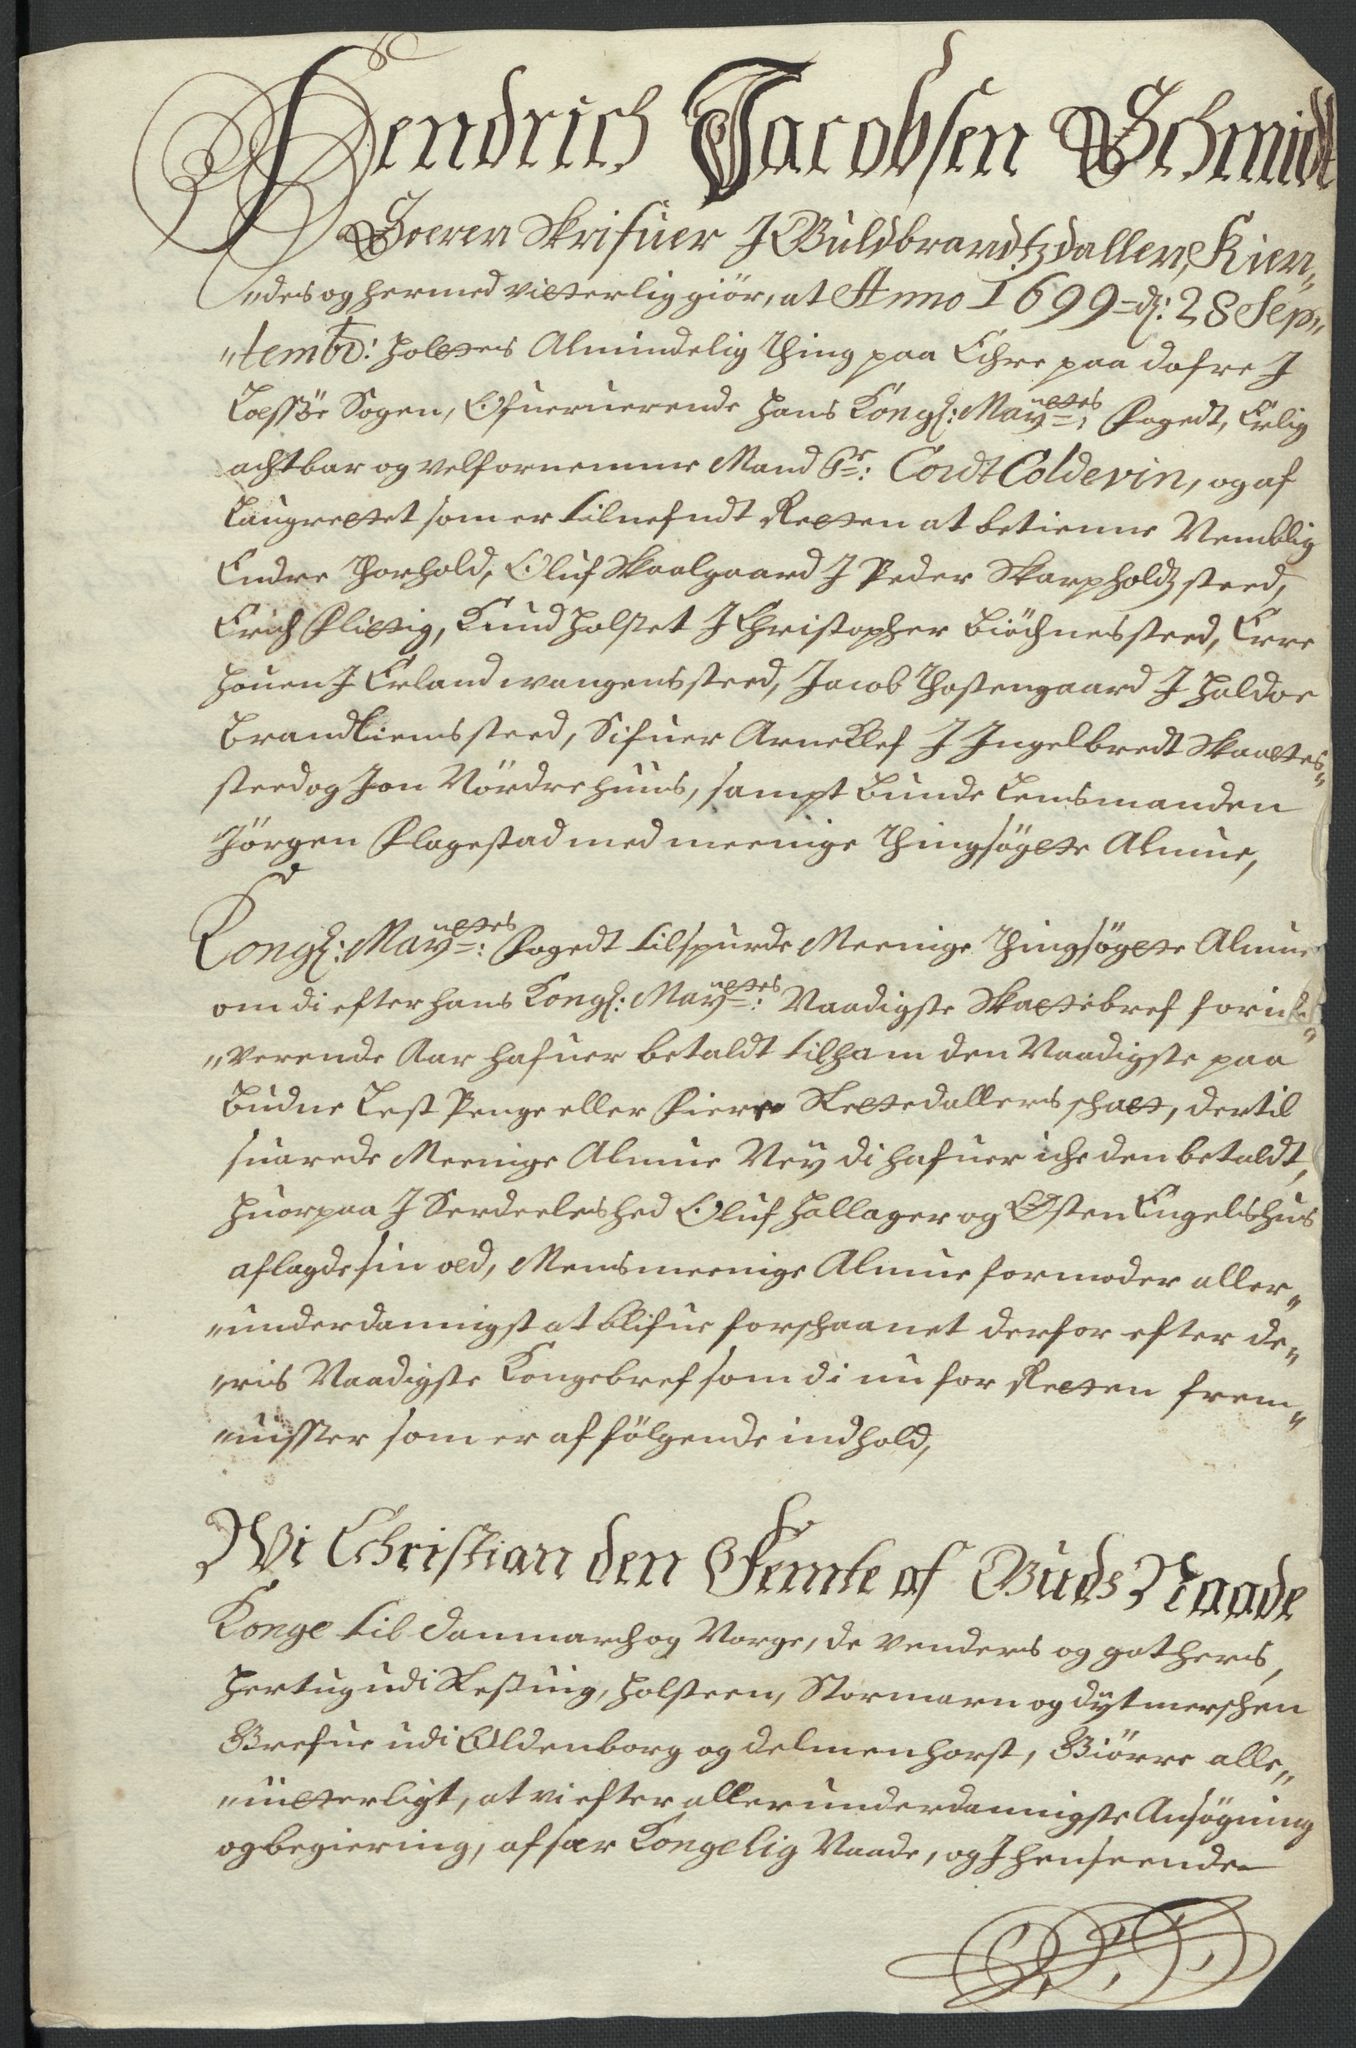 Hendrich Jacobsen Schmidt
Soeren Skrifuer J Guldbrandtzdallen, Kien„
„des og hermed vitterlig giör, at Anno 1699 = d: 28 Sep„
„tembr: holtes Almindelig Thing paa Echre paa dofre J
Lessöe Sogen, Ofueruerende hans Kongl: Mayttes: Fogedt, Erlig
achtbar og velfornemme Mand Sr: Cordt Coldevin, og af
Laugrettet som er tilnefndt Retten at betienne Nemblig
Endre Thorhold, Oluf Skaalgaard J Peder Skarpholdz steed,
Erich Flittig, Knud Holstet J Christopher Biöchnes steed, Erre
Houen J Erland wangens steed, Jacob Thoftengaard J Haldor
Brandliens steed, Sifuer Arneklef J Jngelbredt Skaattes„
steed og Jon Nördrehuus, sampt Bunde Lensmanden
Jörgen Flagestad med meenige Thingsögte Almue,
Kongl: Mayttes: Fogedt tilspurde Meenige Thingsögte Almue
om di efter hans Kongl: Mayttes: Naadigste Skattebref for
„verende Aar hafuer betaldt til ham den Naadigste paa
Budne Lest Penge eller Fiere Rettedallers schatt, dertil
suarede Meenige Almue Ney di hafuer iche den betaldt,
huorpaa J Serdeeleshed Oluf Hallager og Østen Engelshus
aflagde sin æd, Mens meenige Almue formoder aller„
„underdannigst at blifue forschaanet derfor efter de„
„ris Naadigste Kongebref som di nu for Retten frem„
„uisster som er af fölgende indhold,
Wi Christian den Femte af Guds Naade
Konge til Danmarch og Norge, de Venders og gothers,
Hertug udi Slesuig, Holsteen, Stormarn og dytmerschen
Grefue udi Oldenborg og delmenhorst, Giörre alle„
„uitterligt, at vi efter allerunderdannigste Ansögning
og begiering, af sær Kongelig Naade, og J henseende